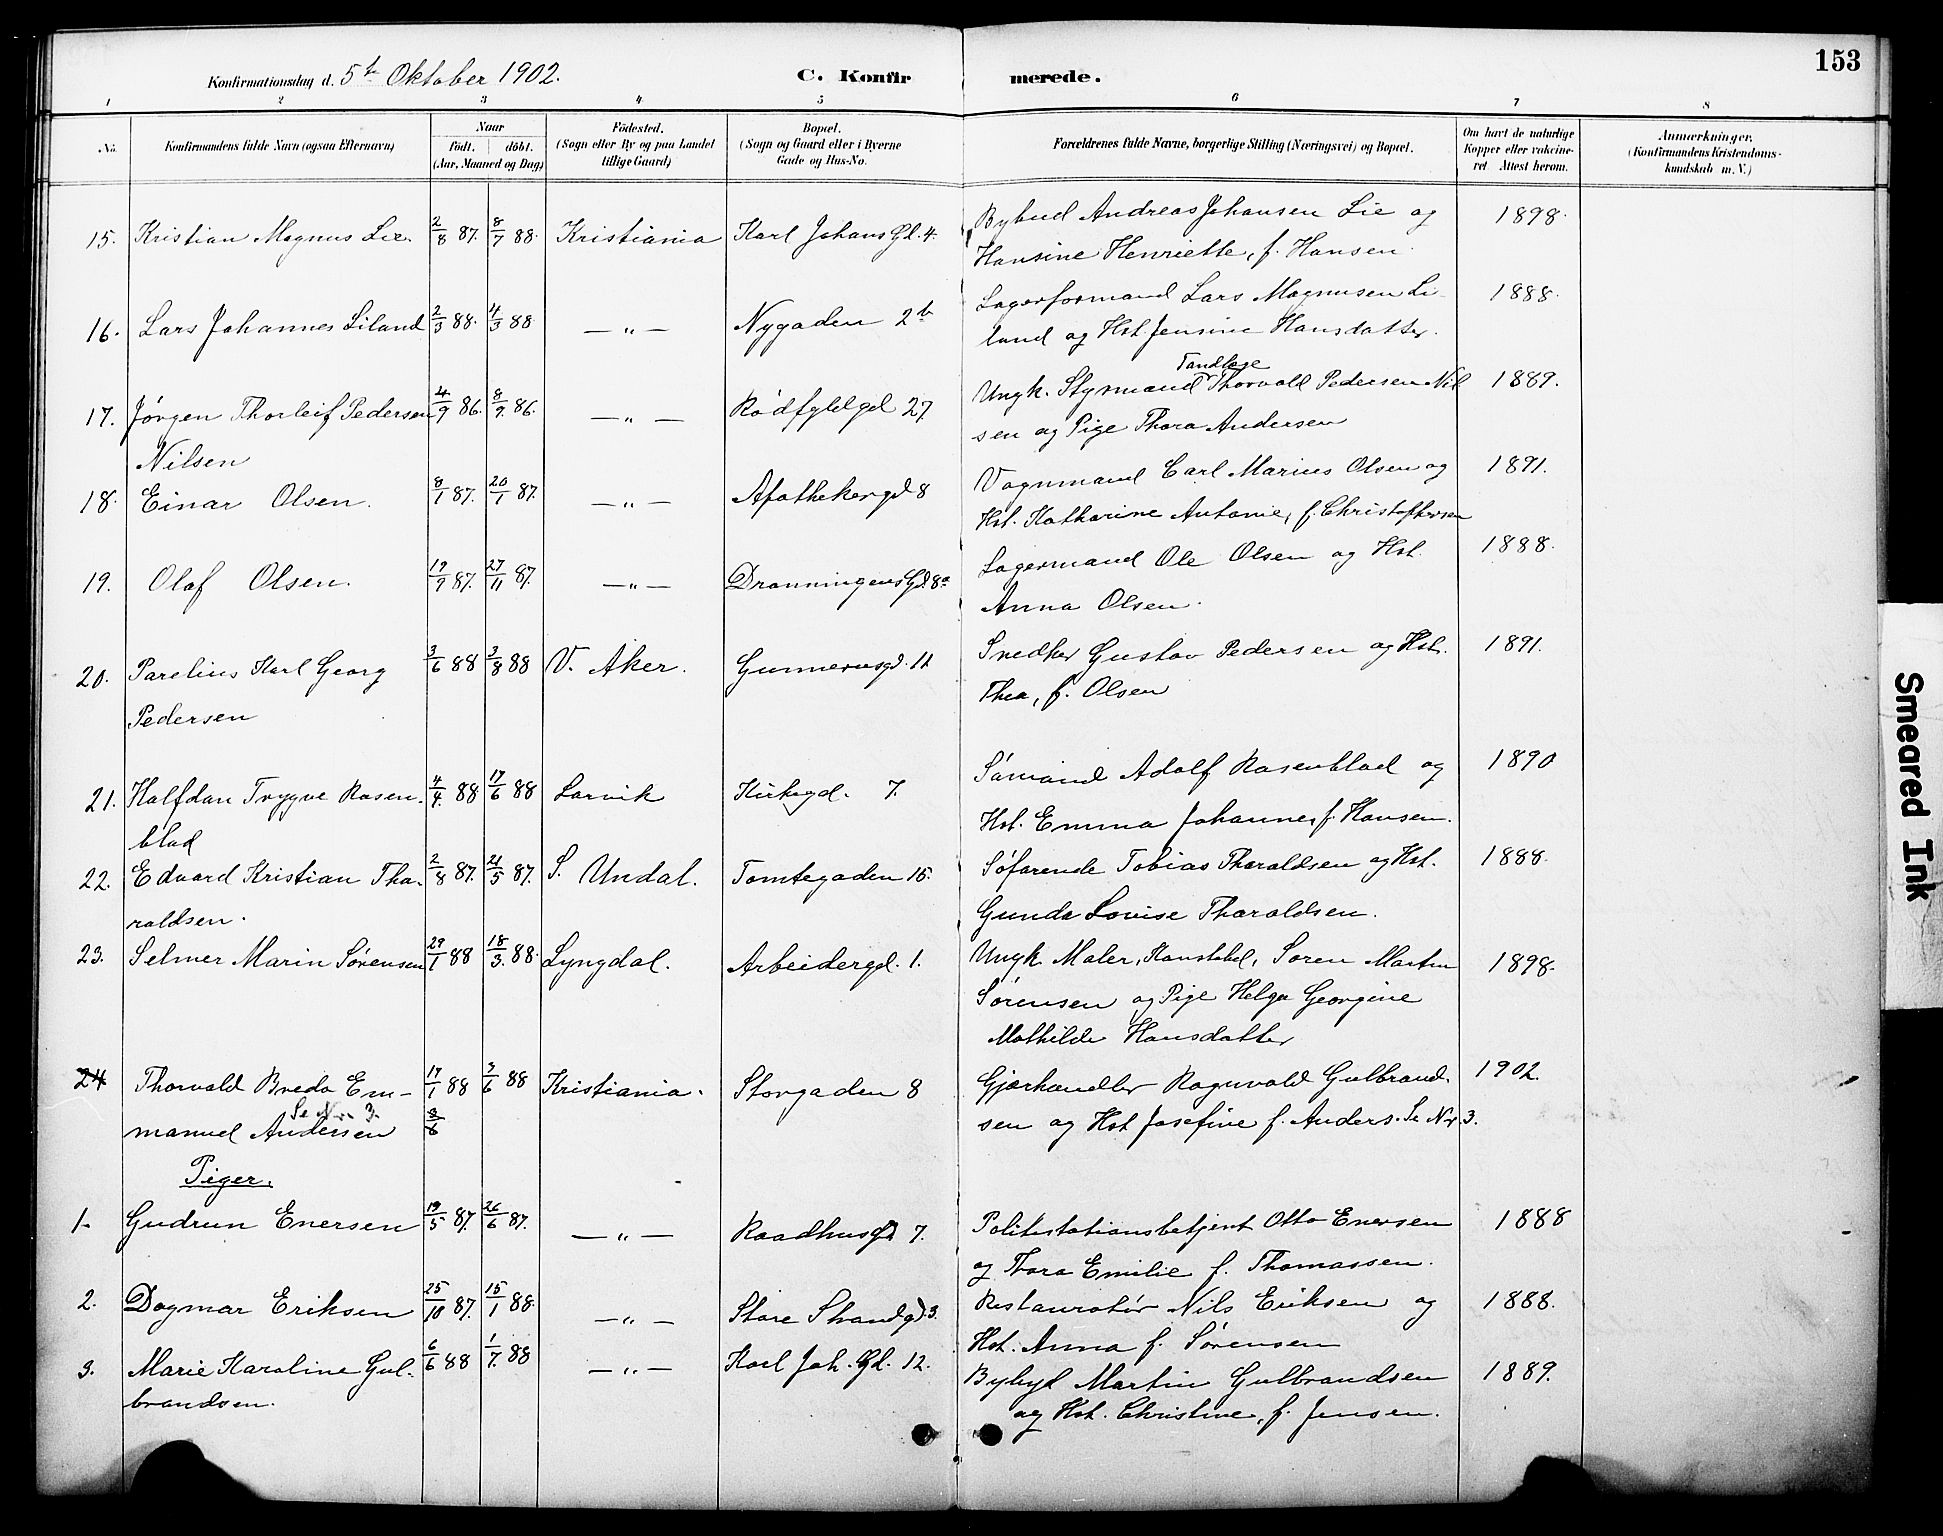 153
Konfirmationsdag d. 5te Oktober 1902. C. Konfirmerede.
1 2 3 4 5 6 7 8
No. Konfirmandens fulde Navn (ogsaa Efternavn) Naar født. døbt. (Aar, Maaned og Dag) Fødested. (Sogn eller By og paa Landet tillige Gaard) Bopæl. (Sogn og Gaard eller i Byerne Gade og Hus-No. Forældrenes fulde Navne, borgerlige Stilling (Næringsvei) og Bopæl. Om havt de naturlige Kopper eller vakcineret Attest herom. Anmærkninger. (Konfirmandens Kristendomskundskab m. V.)
15. Kristian Magnus Lie. 2/8 87. 8/7 88. Kristiania Karl Johans Gd. 4. Bybud Andreas Johansen Lie og 1898.
Hansine Henriette, f. Hansen.
16. Lars Johannes Liland 2/3 88. 4/3 88 —〃— Nygaden 2b Lagerformand Lars Magnusen Li- 1888.
land og Hst. Jensine Hansdatter.
Tandlæge
17. Jørgen Thorleif Pedersen 4/9 86. 8/9. 86. —〃— Rødfyldgd 27 Ungk. Styrmand Thorvald Pedersen Nil 1889.
Nilsen sen og Pige Thora Andersen
18. Einar Olsen. 8/1 87. 20/1 87. —〃— Apothekergd 8 Vognmand Carl Marius Olsen og 1891.
Hst. Katharine Antonie, f. Christophersen
19. Olaf Olsen. 19/9 87. 27/11 87. —〃— Dronningens Gd. 8a Lagermand Ole Olsen og Hst. 1888.
Anna Olsen.
20. Parelius Karl Georg 3/6 88 3/8 88 V. Aker. Gunnerusgd. 11 Snedker Gustav Pedersen og Hst. 1891.
Pedersen Thea, f. Olsen
21. Halfdan Trygve Rosen- 4/4. 88 17/6 88 Larvik Kirkegd. 7. Sømand Adolf Rosenblad og 1890
blad Hst. Emma Johanne, f. Hansen.
22. Edvard Kristian Tha- 2/8 87. 21/5 87. S. Undal. Tomtegaden 15. Søfarende Tobias Tharaldsen og Hst. 1888.
raldsen. Gunda Lovise Tharaldsen.
23. Selmer Marin Sørensen 29/1 88 18/3. 88. Lyngdal. Arbeidergd. 1. Ungk Maler, Konstabel, Søren Martin 1898.
Sørensen og Pige Helga Georgine
Mathilde Hansdatter
24 Thorvald Breda Em- 17/1 88 3/6 88 Kristiania. Storgaden 8 Gjærhandler Ragnvald Gulbrand- 1902.
Se Nr. 3.
manuel Andersen 3/6 sen og Hst Josefine f. Anders. Se Nr. 3.
Piger.
1. Gudrun Enersen 19/5 87. 26/6 87. —〃— Raadhusgd 7. Politistationsbetjent Otto Enersen 1888
og Thora Emilie f. Thomassen.
2. Dagmar Eriksen 25/10 87. 15/1 88. —〃— Store Strandgd. 3. Restauratør Nils Eriksen og 1888.
Hst. Anna f. Sørensen
3. Marie Karoline Gul- 6/6 88 1/7. 88 —〃— Karl Joh. Gd. 12. Martin Gulbrandsen 1889.
brandsen. og Hst. Christine, f. Jensen.
Smeared Ink